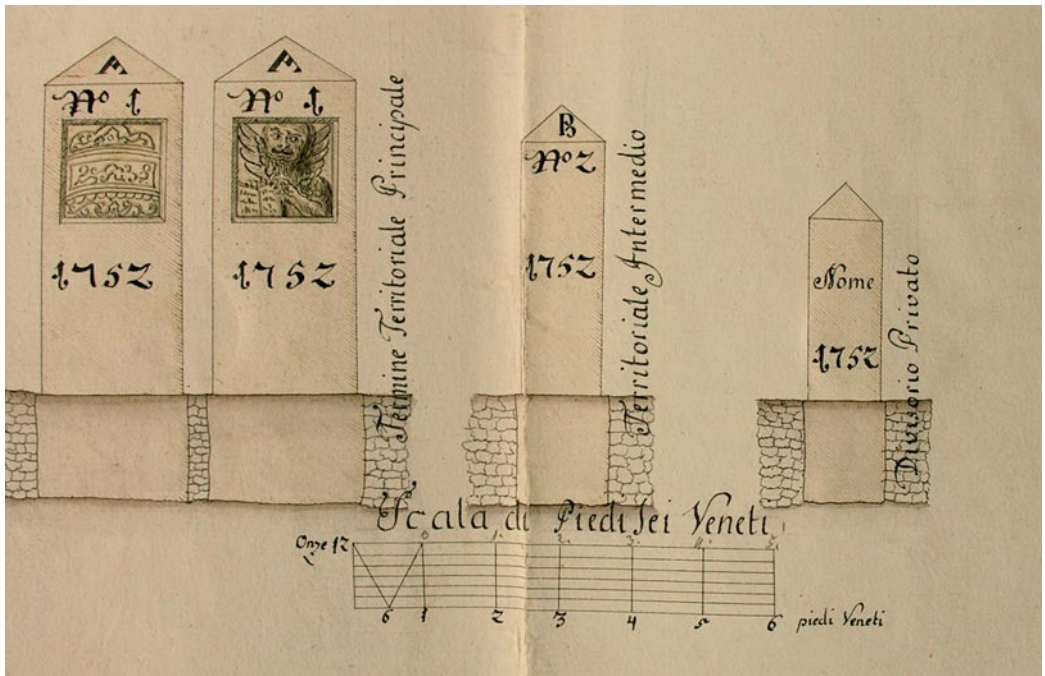 A
No 1
1752
A
No 1
1752
Termine Territoriale Principale
B
No 2
1752
Territoriale Intermedio
Nome
1752
Divisorio Privato
Scala di Piedi sei Veneti
Onze 12
0 1. 2. 3. 4. 5.
6 1 2 3 4 5 6 piedi Veneti